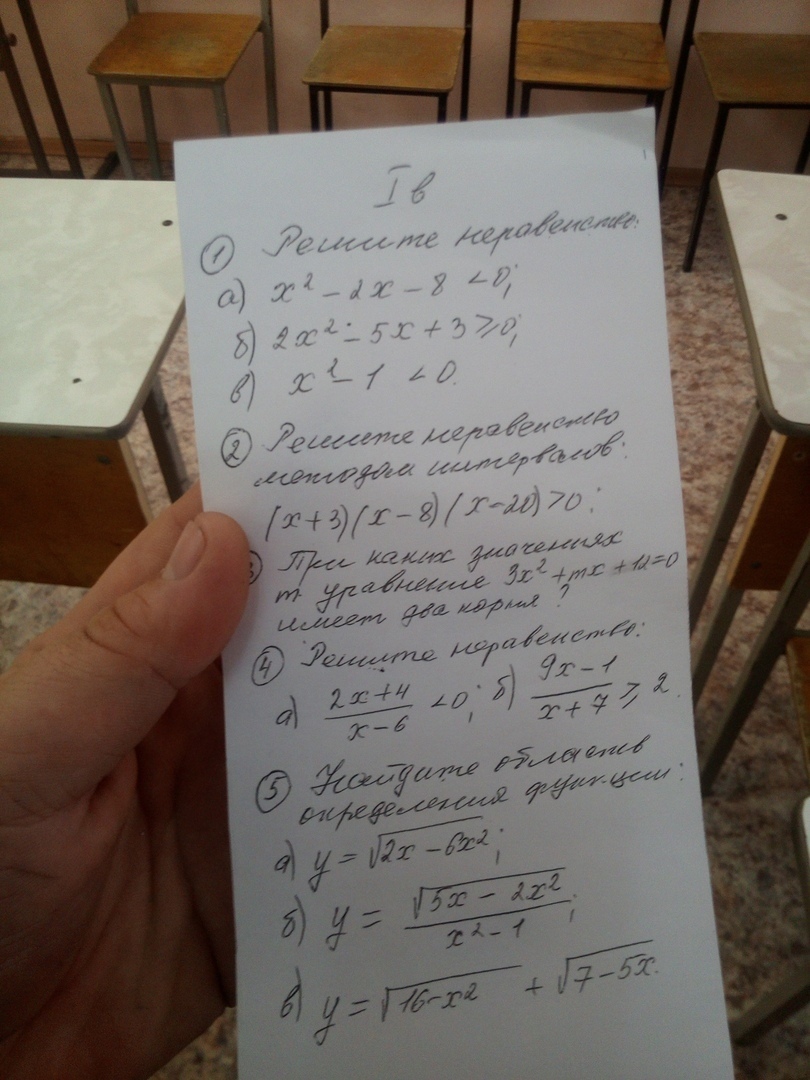 I в
① Решите неравенство:
а) x² − 2x − 8 < 0;
б) 2x² − 5x + 3 ≥ 0;
в) x² − 1 < 0.
② Решите неравенство
методом интервалов:
(x+3)(x−8)(x−20)>0;
③ При каких значениях
m уравнение 3x²+mx+12=0
имеет два корня?
④ Решите неравенство:
а) (2x+4)/(x−6) < 0; б) (9x−1)/(x+7) ≥ 2.
⑤ Найдите область
определения функции:
а) y = √(2x − 6x²);
б) y = √(5x − 2x²)/(x² − 1);
в) y = √(16−x²) + √(7−5x).